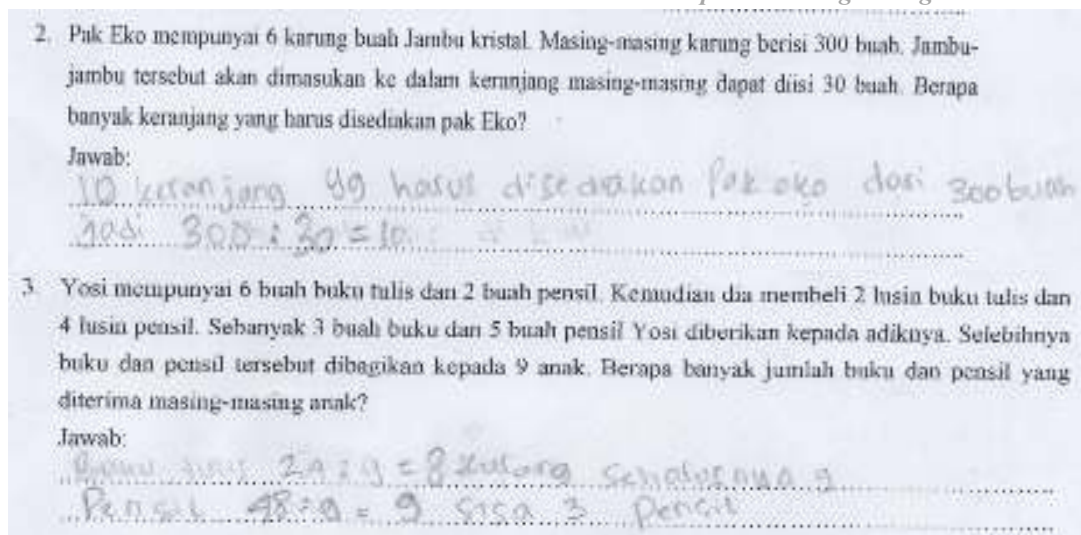 2. Pak Eko mempunyai 6 karung buah Jambu kristal. Masing-masing karung berisi 300 buah. Jambu-
jambu tersebut akan dimasukan ke dalam keranjang masing-masing dapat diisi 30 buah. Berapa
banyak keranjang yang harus disediakan pak Eko?
Jawab:
10 keranjang yg harus disediakan Pak eko dari 300 buah
Jadi 300 : 30 = 10
3. Yosi mempunyai 6 buah buku tulis dan 2 buah pensil. Kemudian dia membeli 2 lusin buku tulis dan
4 lusin pensil. Sebanyak 3 buah buku dan 5 buah pensil Yosi diberikan kepada adiknya. Selebihnya
buku dan pensil tersebut dibagikan kepada 9 anak. Berapa banyak jumlah buku dan pensil yang
diterima masing-masing anak?
Jawab:
24 : 9 = 8 kurang seharusnya 9
Pensil 48 : 9 = 9 sisa 3 Pensil